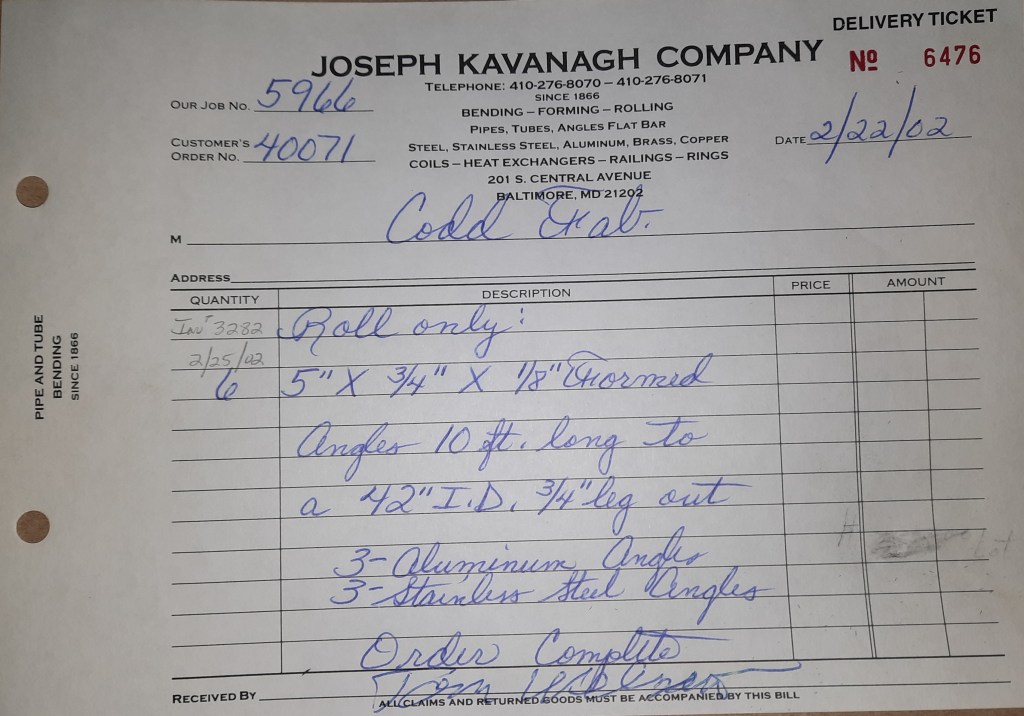 DELIVERY TICKET
JOSEPH KAVANAGH COMPANY
Nº 6476
TELEPHONE: 410-276-8070 – 410-276-8071
SINCE 1866
BENDING – FORMING – ROLLING
PIPES, TUBES, ANGLES FLAT BAR
STEEL, STAINLESS STEEL, ALUMINUM, BRASS, COPPER
COILS – HEAT EXCHANGERS – RAILINGS – RINGS
201 S. CENTRAL AVENUE
BALTIMORE, MD 21202
OUR JOB NO. 5966
CUSTOMER'S ORDER NO. 40071
DATE 2/22/02
M Codd Fab.
ADDRESS
QUANTITY DESCRIPTION PRICE AMOUNT
Inv# 3282 Roll only:
2/25/02
6 5" X 3/4" X 1/8" Formed
Angles 10 ft. long to
a 42" I.D. 3/4" leg out
3- Aluminum Angles
3- Stainless Steel Angles
Order Complete
RECEIVED BY
ALL CLAIMS AND RETURNED GOODS MUST BE ACCOMPANIED BY THIS BILL
PIPE AND TUBE
BENDING
SINCE 1866